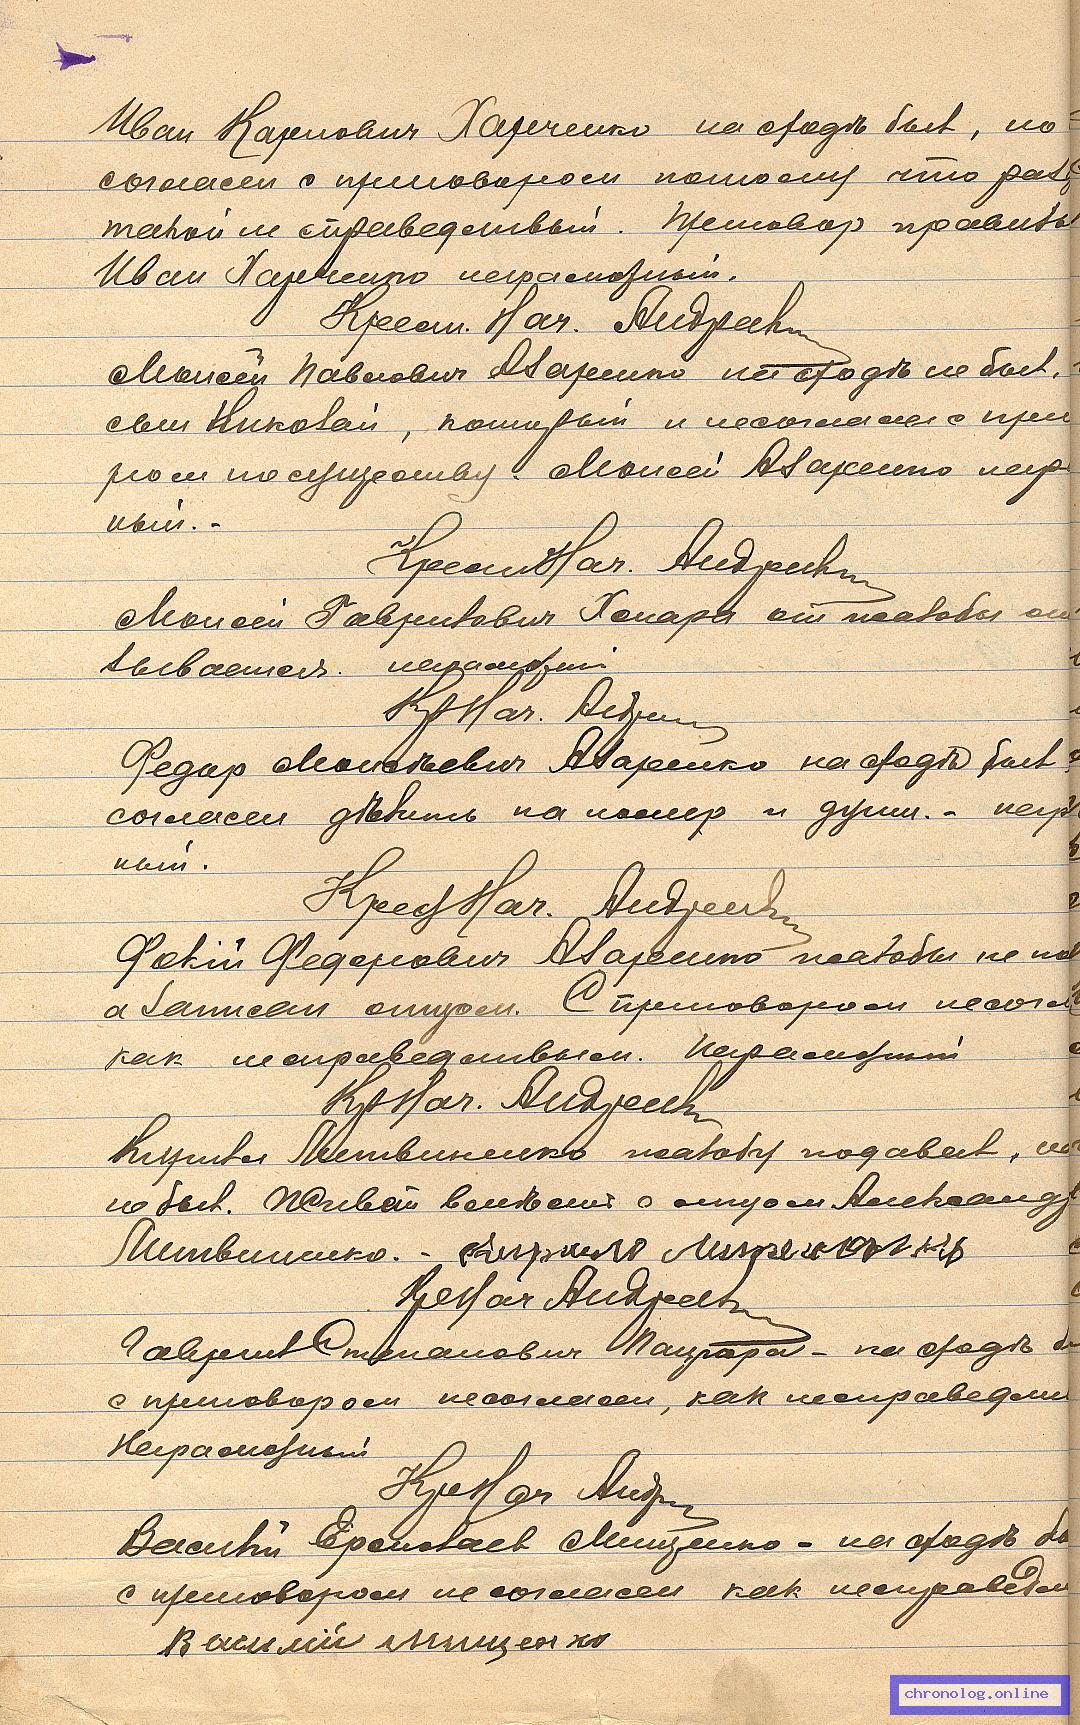 Иван Карпович Харченко на сходѣ был, но
согласен с приговором потому что раз
такой и справедливый. Приговор правиль
Иван Харченко неграмотный.
Крест. Нач. Андреев
Моисей Павлович Азаренко на сходѣ не был,
сын Николай, который и несогласен с приго
ром по существу. Моисей Азаренко негр
ный.-
Крест Нач. Андреев
Моисей Гаврилович Хопара от жалобы от
зывается. неграмотный
Кр Нач. Андреев
Федор Моисѣевич Азаренко на сходѣ был
согласен дѣлить на номер и души.- негр
ный.
Крест Нач. Андреев
Фокій Федорович Азаренко жалобы не по
а записан отцом. С приговором несогл
как несправедливым. Неграмотный
Кр Нач. Андреев
Кирилл Литвиненко жалобу подавал,
не был. Живёт вмѣстѣ с отцом Александр
Литвиненко.-
Кре Нач Андреев
Гаврил Степанович - на сходѣ б
с приговором несогласен, как несправедли
Неграмотный
Кре Нач Андр
Василій Ермолаев Мищенко - на сходѣ бы
с приговором не согласен как несправедл
Василий Мищенко
chronolog.online